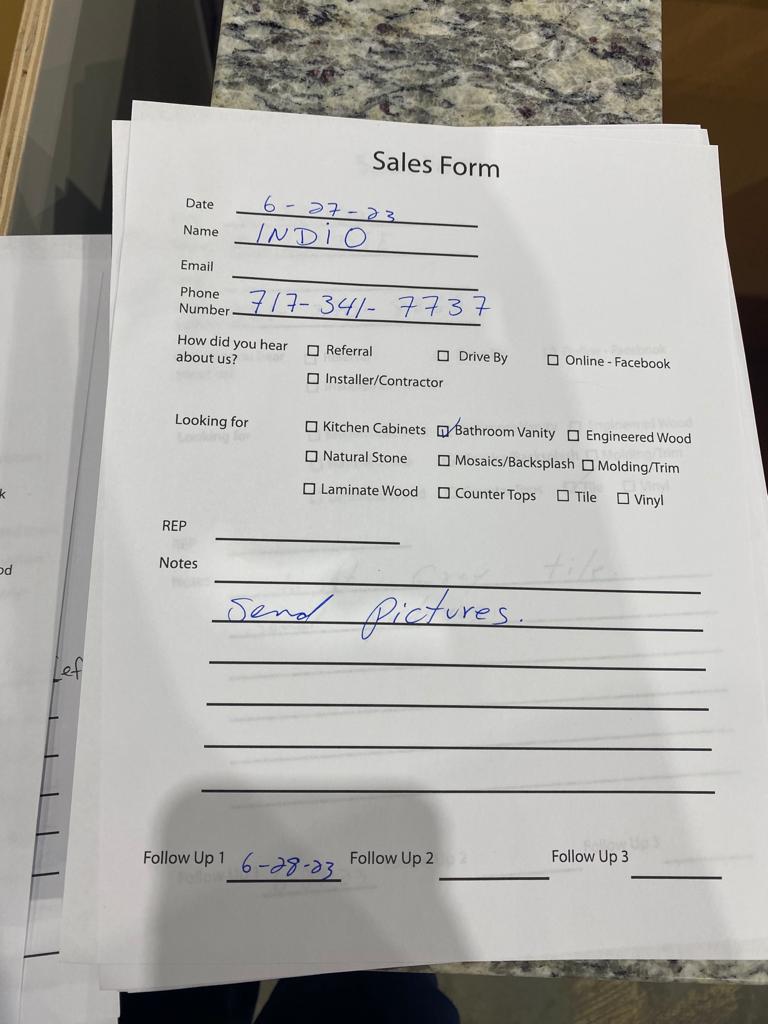 Sales Form
Date 6-27-23
Name INDiO
Email
Phone
Number 717-341-7737
How did you hear
about us?
☐ Referral ☐ Drive By ☐ Online - Facebook
☐ Installer/Contractor
Looking for
☐ Kitchen Cabinets ☑ Bathroom Vanity ☐ Engineered Wood
☐ Natural Stone ☐ Mosaics/Backsplash ☐ Molding/Trim
☐ Laminate Wood ☐ Counter Tops ☐ Tile ☐ Vinyl
REP
Notes
Send pictures.
Follow Up 1 6-28-23 Follow Up 2 Follow Up 3